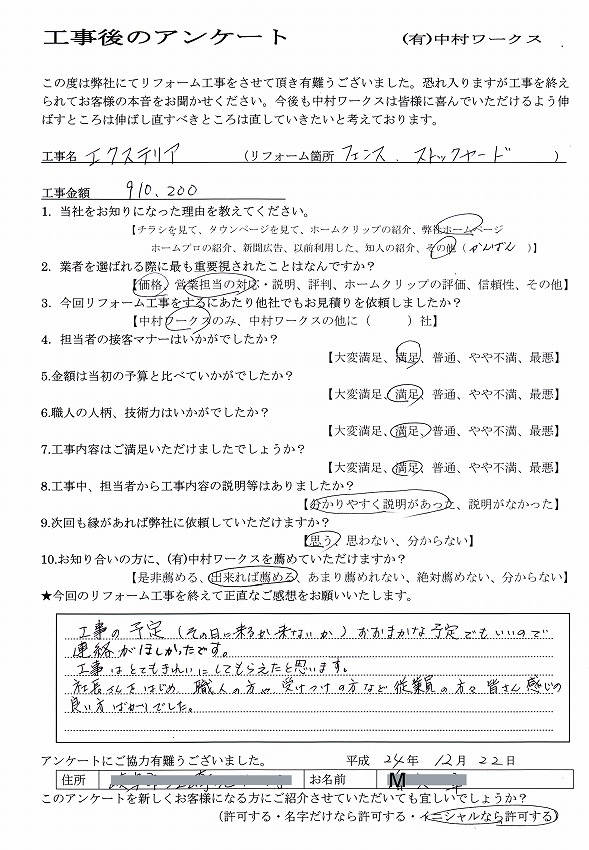 工事後のアンケート (有)中村ワークス
この度は弊社にてリフォーム工事をさせて頂き有難うございました。恐れ入りますが工事を終え
られてお客様の本音をお聞かせください。今後も中村ワークスは皆様に喜んでいただけるよう伸
ばすところは伸ばし直すべきところは直していきたいと考えております。
工事名 エクステリア (リフォーム箇所 フェンス. ストックヤード )
工事金額 910.200
1. 当社をお知りになった理由を教えてください。
【チラシを見て、タウンページを見て、ホームクリップの紹介、弊社ホームページ
ホームプロの紹介、新聞広告、以前利用した、知人の紹介、その他(かんばん )】
2. 業者を選ばれる際に最も重要視されたことはなんですか?
【価格、営業担当の対応・説明、評判、ホームクリップの評価、信頼性、その他】
3. 今回リフォーム工事をするにあたり他社でもお見積りを依頼しましたか?
【中村ワークスのみ、中村ワークスの他に( )社】
4. 担当者の接客マナーはいかがでしたか?
【大変満足、満足、普通、やや不満、最悪】
5.金額は当初の予算と比べていかがでしたか?
【大変満足、満足、普通、やや不満、最悪】
6.職人の人柄、技術力はいかがでしたか?
【大変満足、満足、普通、やや不満、最悪】
7.工事内容はご満足いただけましたでしょうか?
【大変満足、満足、普通、やや不満、最悪】
8.工事中、担当者から工事内容の説明等はありましたか?
【分かりやすく説明があった、説明がなかった】
9.次回も縁があれば弊社に依頼していただけますか?
【思う、思わない、分からない】
10.お知り合いの方に、(有)中村ワークスを薦めていただけますか?
【是非薦める、出来れば薦める、あまり薦めれない、絶対薦めない、分からない】
★今回のリフォーム工事を終えて正直なご感想をお願いいたします。
工事の予定(その日に来るか来ないか)おおまかな予定でもいいので
連絡がほしかったです。
工事はとてもきれいにしてもらえたと思います。
社長さんをはじめ 職人の方や受けつけの方など従業員の方々皆さん感じの
良い方ばかりでした。
アンケートにご協力有難うございました。 平成 24年 12月 22日
住所 お名前 M
このアンケートを新しくお客様になる方にご紹介させていただいても宜しいでしょうか?
(許可する・名字だけなら許可する・イニシャルなら許可する)